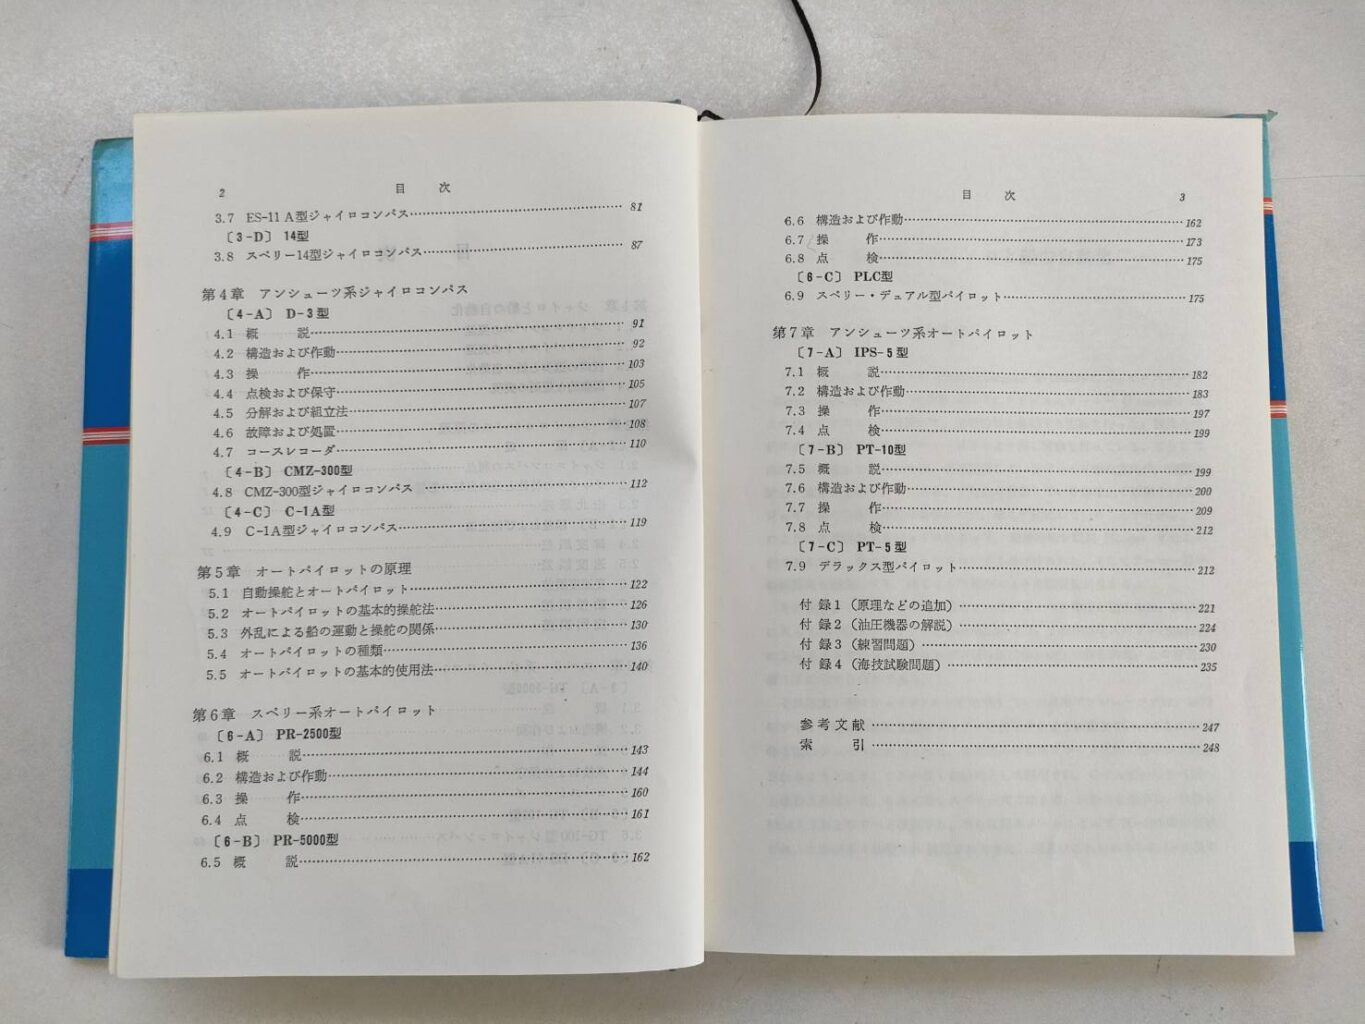 2
目 次
3.7 ES-11 A型ジャイロコンパス 81
〔3-D〕 14型
3.8 スペリー14型ジャイロコンパス 87
第4章 アンシューツ系ジャイロコンパス
〔4-A〕 D-3型
4.1 概 説 91
4.2 構造および作動 92
4.3 操 作 103
4.4 点検および保守 105
4.5 分解および組立法 107
4.6 故障および処置 108
4.7 コースレコーダ 110
〔4-B〕 CMZ-300型
4.8 CMZ-300型ジャイロコンパス 112
〔4-C〕 C-1A型
4.9 C-1A型ジャイロコンパス 119
第5章 オートパイロットの原理
5.1 自動操舵とオートパイロット 122
5.2 オートパイロットの基本的操舵法 126
5.3 外乱による船の運動と操舵の関係 130
5.4 オートパイロットの種類 136
5.5 オートパイロットの基本的使用法 140
第6章 スペリー系オートパイロット
〔6-A〕 PR-2500型
6.1 概 説 143
6.2 構造および作動 144
6.3 操 作 160
6.4 点 検 161
〔6-B〕 PR-5000型
6.5 概 説 162
目 次
3
6.6 構造および作動 162
6.7 操 作 173
6.8 点 検 175
〔6-C〕 PLC型
6.9 スペリー・デュアル型パイロット 175
第7章 アンシューツ系オートパイロット
〔7-A〕 IPS-5型
7.1 概 説 182
7.2 構造および作動 183
7.3 操 作 197
7.4 点 検 199
〔7-B〕 PT-10型
7.5 概 説 199
7.6 構造および作動 200
7.7 操 作 209
7.8 点 検 212
〔7-C〕 PT-5型
7.9 デラックス型パイロット 212
付録1（原理などの追加） 221
付録2（油圧機器の解説） 224
付録3（練習問題） 230
付録4（海技試験問題） 235
参考文献 247
索 引 248